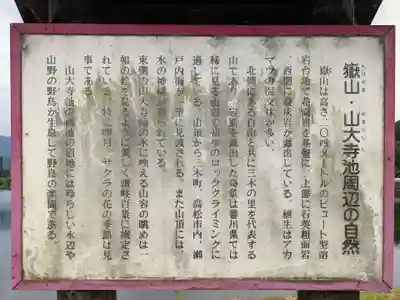 嶽山・山大寺池周辺の自然
嶽山は高さ二〇四メートルのビュート型溶
岩台地で花崗岩を基盤に、上部に石英粗面岩
西側に凝灰岩が露出している。植生はアカ
マツの混交林が多い。
北側にある白山と共に三木の里を代表する
山であり、岩肌を露出した奇景は香川県では
稀に見る
のロッククライミングに
適している。山頂から三木町、高松市内、瀬
戸内海が一望に見渡される。また山頂には
水の神様が祀られている。
東側の山大寺池の水に映える山容の眺めは一
幅の絵を見るように美しく讃岐百景に選定さ
れている。特に四月、サクラの花の季節は見
事である。
山大寺池の
沼池には珍らしい水辺や
山野の野鳥が生息して野鳥の楽園である。